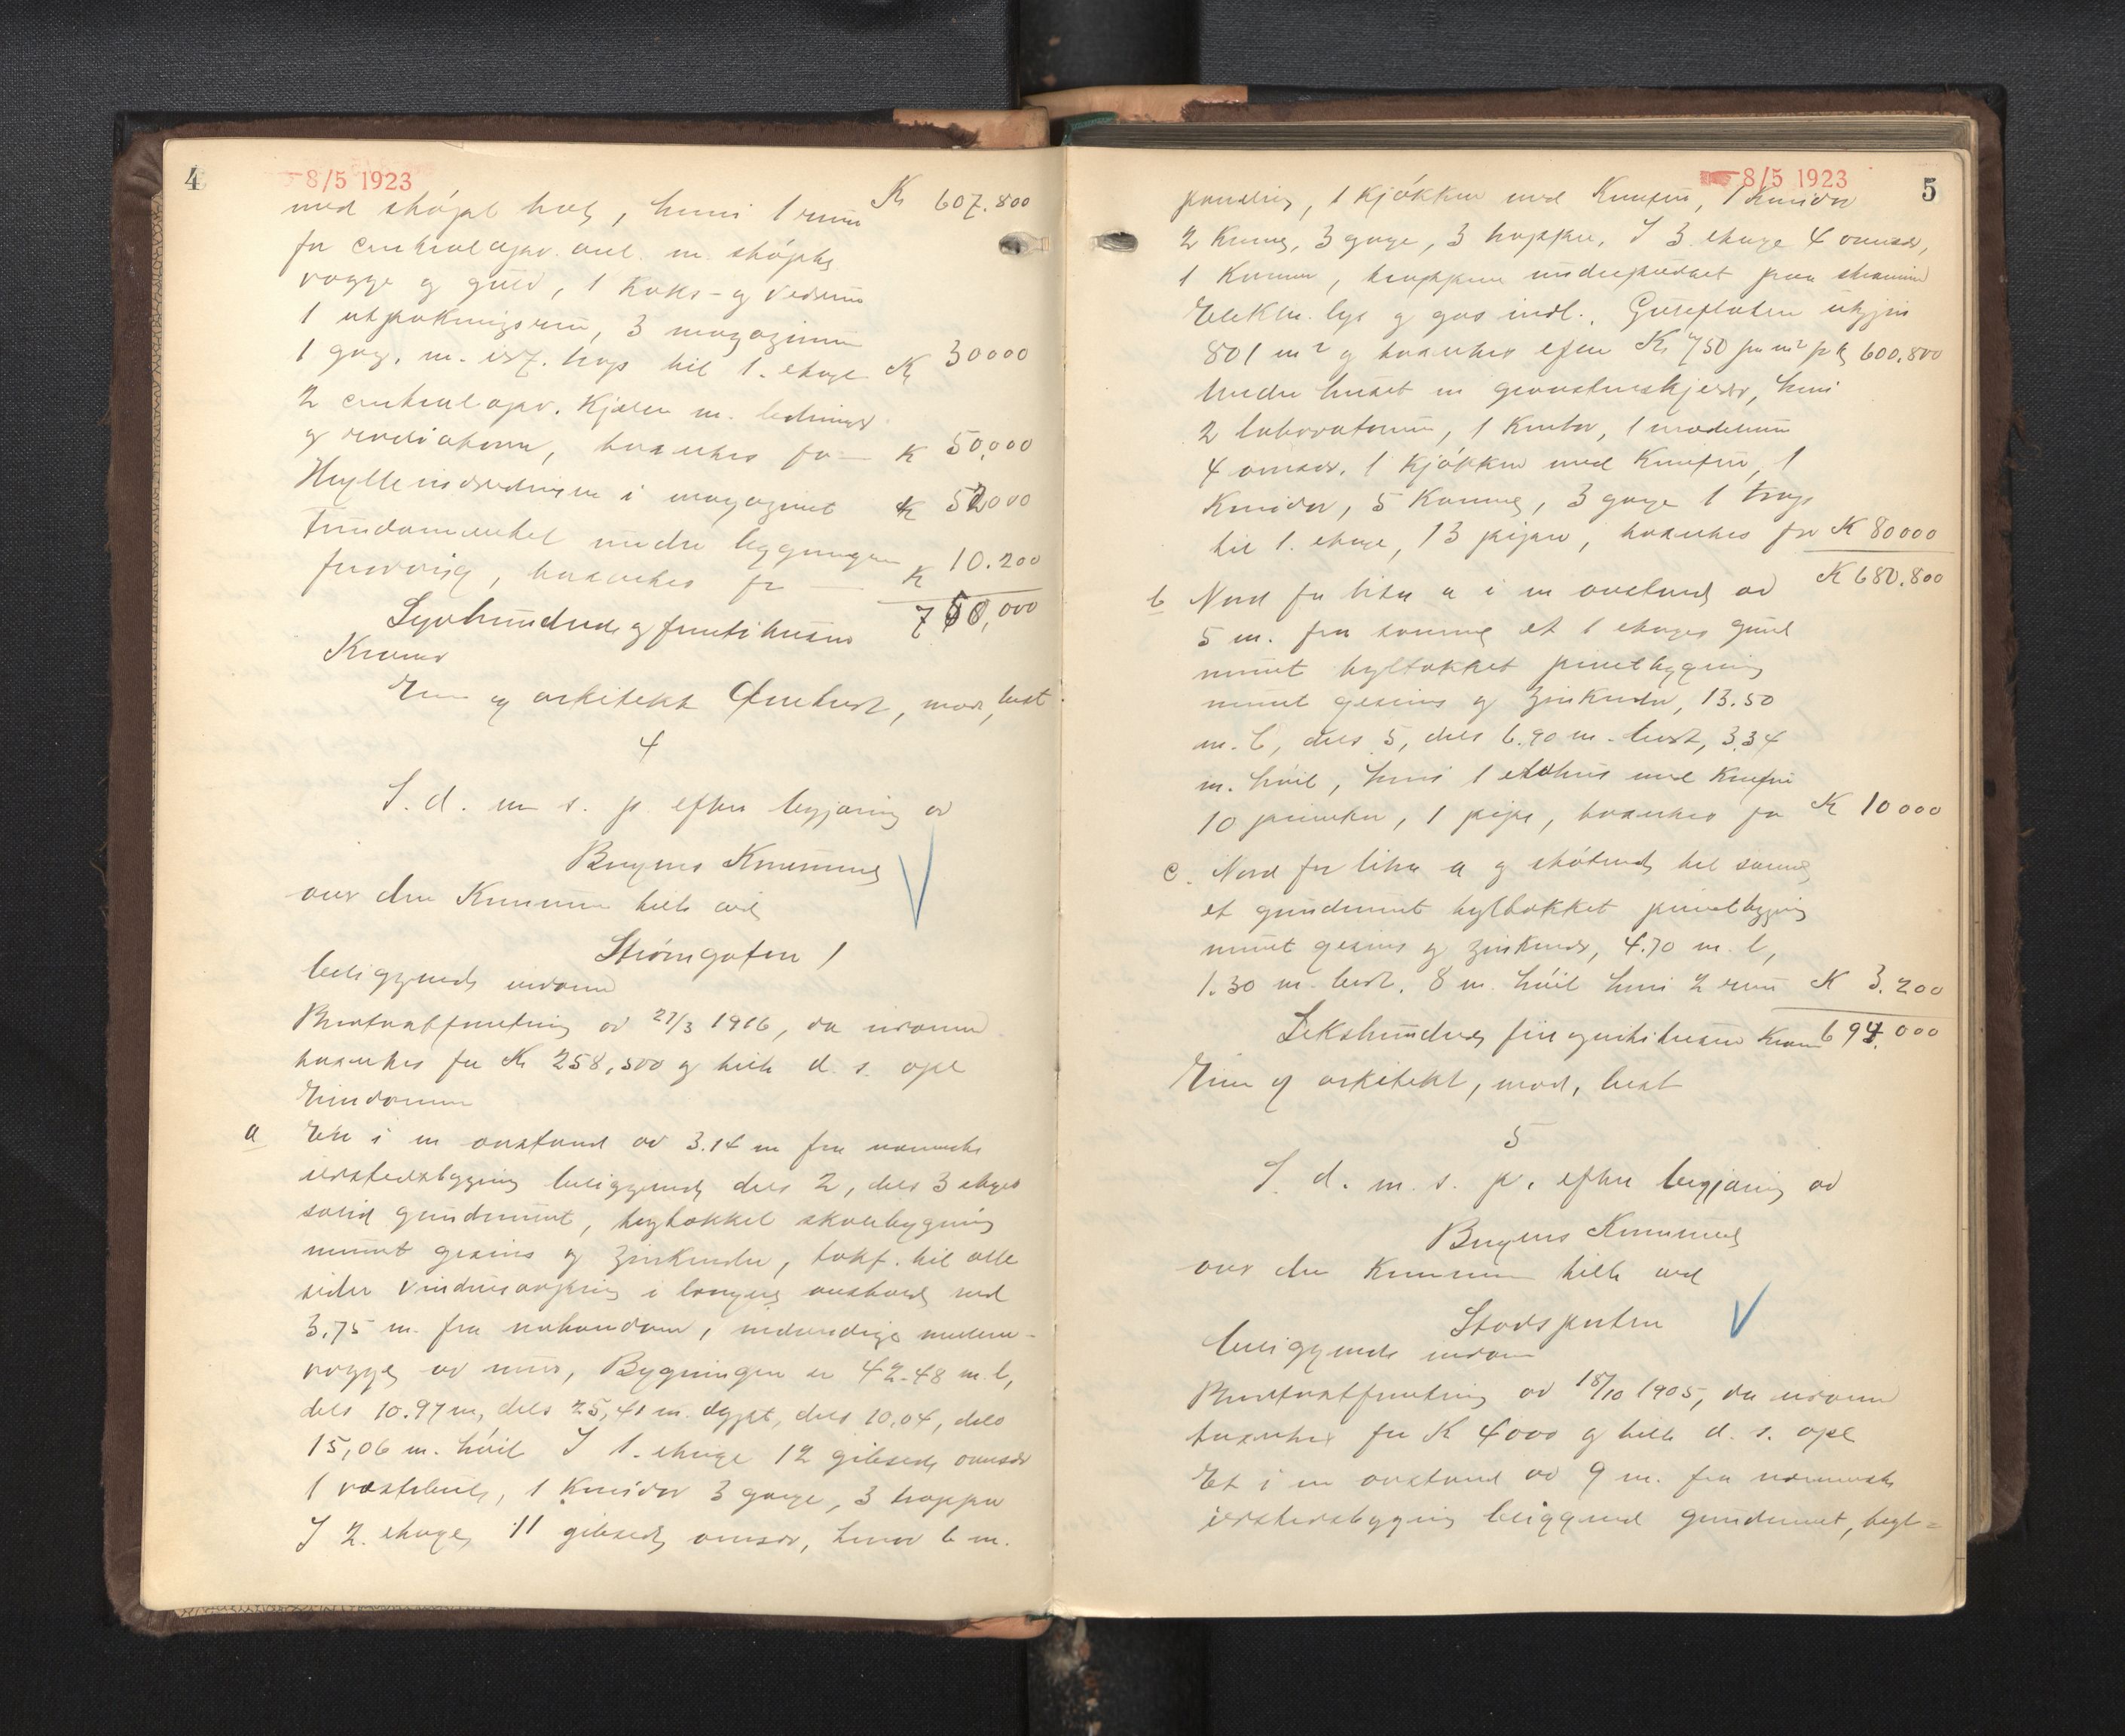 4
8/5 1923
med støpt hvlv, hvori 1 rum Kr 607.800
for centralopv. anl. m. støpte
vægge og gulv, 1 koks- og vedrum
1 utpakningsrum, 3 magaziner
1 gang. m. trap til 1. etage Kr 30000
2 centralopv. kjeler m. ledninger
og radiatorer, takseres for K 50.000
Hylleindredningen i magazinet K 52000
Fundamentet under bygningen
forøvrig, takseres for K 10.200
Syvhundrede og femti tusen 750,000
Kroner
Eier og arkitekt, mødt, best
4
S. d. m s. p. efter begjæring av
Bergens Kommune
over den Kommunen tilh. ved
Strømgaten 1
beliggende eiendom
Brandtakstforretning av 27/3 1916, da eiendommen
takseres for Kr 258,500 og tilh. d. s. opl
Eiendommen
a Et i en avstand av 3.14 m fra nærmeste
ildstedsbygning beliggende dels 2, dels 3 etages
solid grundmuret, tegltækket skolebygning
muret gesims og zinkrender, takf. til alle
sider vindusarker i længere avstand end
3.75 m. fra naboeiendom, indvendige mellem-
vægge av mur, Bygningen er 42.48 m. l,
dels 10.97 m, dels 25,41 m. dypt, dels 10.04, dels
15,06 m. høit I 1. etage 12 gibsede værelser
1 vestibule, 1 korridor 3 gange, 3 trapper
I 2. etage 11 gibsede værelser, hvorav 6 m.
8/5 1923
5
paneling, 1 kjøkken med komfur, 1 korridor
2 kammer, 3 gange, 3 trapper, I 3 etage 4 værelser,
1 kammer, trapperne underpudset paa
Elektr. lys og gas indl. Grundflaten utgjør
801 m² og takseres efter Kr 750 pr m² pr K 600.800
Under huset er graastenskjelder, hvori
2 laboratorier, 1 kontor, 1 maderum
4 værelser. 1 kjøkken med komfur, 1
korridor, 5 kammer, 3 gange 1 trap
til 1. etage, 13 piper, takseres for K 80000
K 680.800
b Nord for litra a i en avstand av
5 m. fra samme et 1 etages grund
muret tegltækket privetbygning
muret gesims og zinkrender, 13.50
m. l, dels 5, dels 6.90 m. bredt, 3.34
m. høit, hvori 1 eldhus med komfur
10 priveter, 1 pipe, takseres for K 10000
c. Nord for litra a og støtende til samme
et grundmuret tegltækket privetbygning
muret gesims og zinkrender, 4.70 m. l,
1.30 m. bredt. 8 m. høit hvori 2 rum K 3.200
Sekshundrede fire og nitti tusen Kroner 694.000
Eier og arkitekt, mødt, best
5
S. d. m. s. p. efter begjæring av
Bergens Kommune
over den Kommunen tilh. ved
Stadsporten
beliggende eiendom
Brandtakstforretning av 18/10 1905, da eiendommen
takseres for K 4000 og tilh. d. s. opl
Et i en avstand av 9 m. fra nærmeste
ildstedsbygning beliggende grundmuret, tegl=